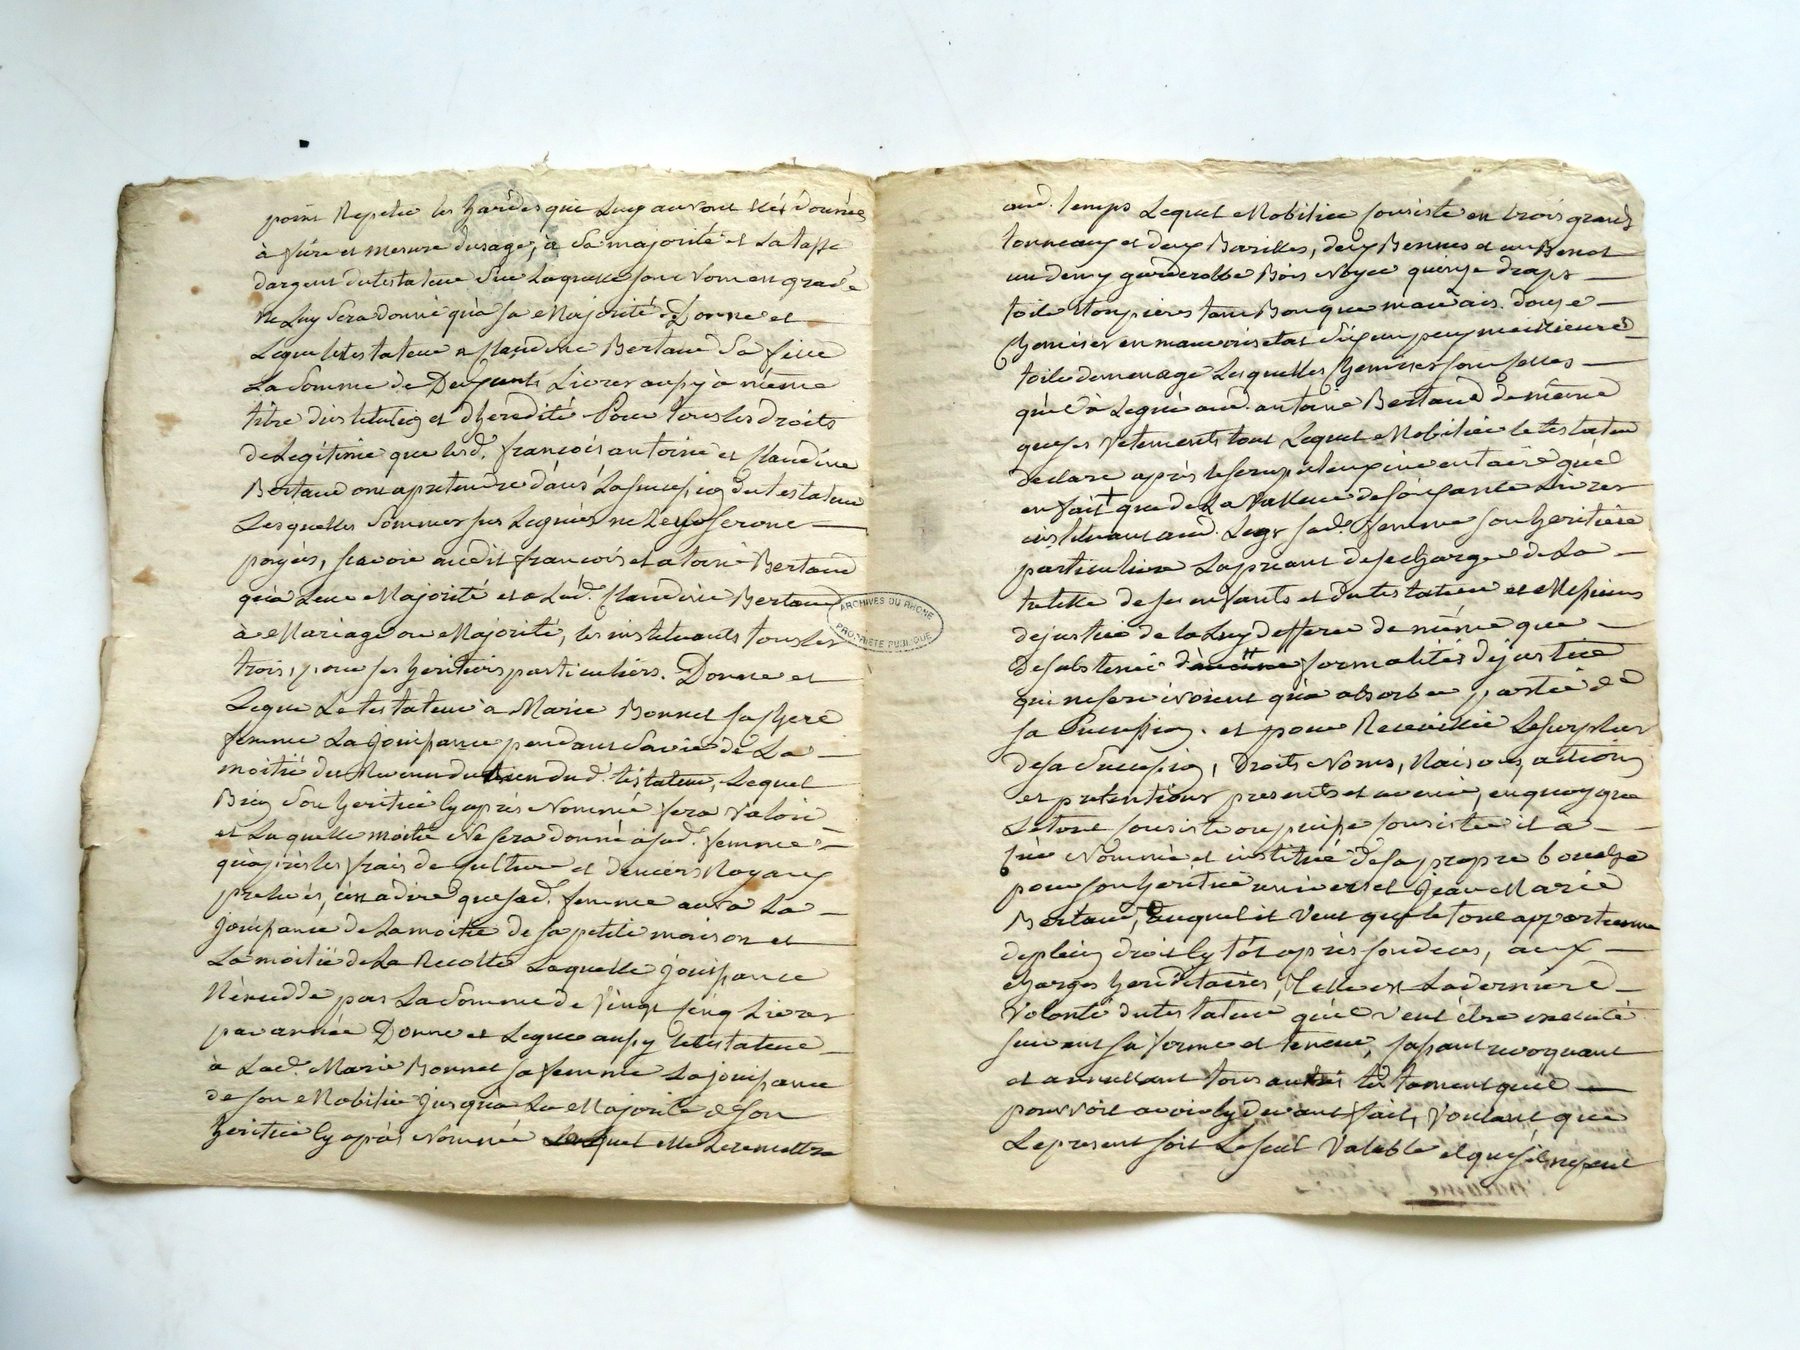 point Repetter les hardes que Luy auront étéz données
à fûre et mesure dusage, à Sa majorité et La tasse
dargent du testateur Sur Laquelle son nom en gravé
ne Luy Sera donné qu'à Sa Majorité. Donne et
Legue Letestateur a Claudine Bertaud Sa fille
La Somme de Deux cents Livres aussy à même
titre dinstitution et dheredité Pour tous les droits
de Legitime que lesd. françois antoine et Claudine
Bertaud ont a pretendre dans La Succession du testateur
Lesquelles Sommes sus Leguées ne Leur Seront
payées, scavoir audit françois et antoine Bertaud
qu'a Leur Majorité et a Lad. Claudine Bertaud
à Mariage ou Majorité, les instituants tous les
trois, pour ses heritiers particuliers. Donne et
Legue Le testateur a Marie Bonnet sa chere
femme La Jouissance pendant Sa vie de La
moitié du Revenu du bien dud. testateur, Lequel
Bien Son heritier cy après Nommé fera valoir
et Laquelle moitié Ne sera donné a sad. femme
qu'apres les frais de culture et deniers Royaux
prelevés, cest a dire que sad. femme aura La
Jouissance de La moitié de sa petite maison et
La moitié de La Recolte Laquelle Jouissance
N'excedde pas La Somme de Vingt Cinq Livres
par année Donne et Legue aussy Letestateur
à Lad. Marie Bonnet sa femme La Jouissance
de son Mobilier Jusqu'a La Majorité de Son
heritier cy après Nommé Lequel elle Le remettra
ARCHIVES DU RHONE
PROPRIÉTÉ PUBLIQUE
aud. temps Lequel Mobilier Consiste en trois grands
tonneaux et deux Barilles, deux Bennes et un Benot
un demy garderobbe Bois Noyer quinze draps
toile Etoupieres tant Bon que mauvais douze
Chemises en mauvais etat Six un peu meilleures
toile de menage Lesquelles Chemises sont celles
qu'il à Legué aud. antoine Bertaud de même
que ses vetements tout Lequel Mobilier le testateur
declare après le scrupuleux inventaire qu'il
en fait que de La Valleur de soixante Livres
instituant aud. Legs sad. femme son heritiere
particuliere La priant de se charger de La
tutelle de ses enfants et du testateur et Messieurs
de justice de la Luy defferer de même que
de sabstenir d'aucune formalités de justice
qui ne serviroient qu'a absorber partie de
sa Succession. et pour Receuillir Le surplus
de sa Succession, Droits Noms, Raisons, actions
et pretentions presents et avenir, en quoy que
Le tout Consiste ou puisse consister il a
Nommé et institué de sa propre bouche
pour son heritier universel Jean Marie
Bertaud, auquel il veut que le tout appartienne
de plein droit cy tôt après son deces, aux
charges hereditaires, Telle est La derniere
Volonté du testateur qu'il veut être executé
suivant sa forme et teneur, cassant revoquant
et annullant tous autres testament qu'il
pourroit avoir cy devant fait, Voulant que
Le present soit Le seul Valable et que s'il ne peut